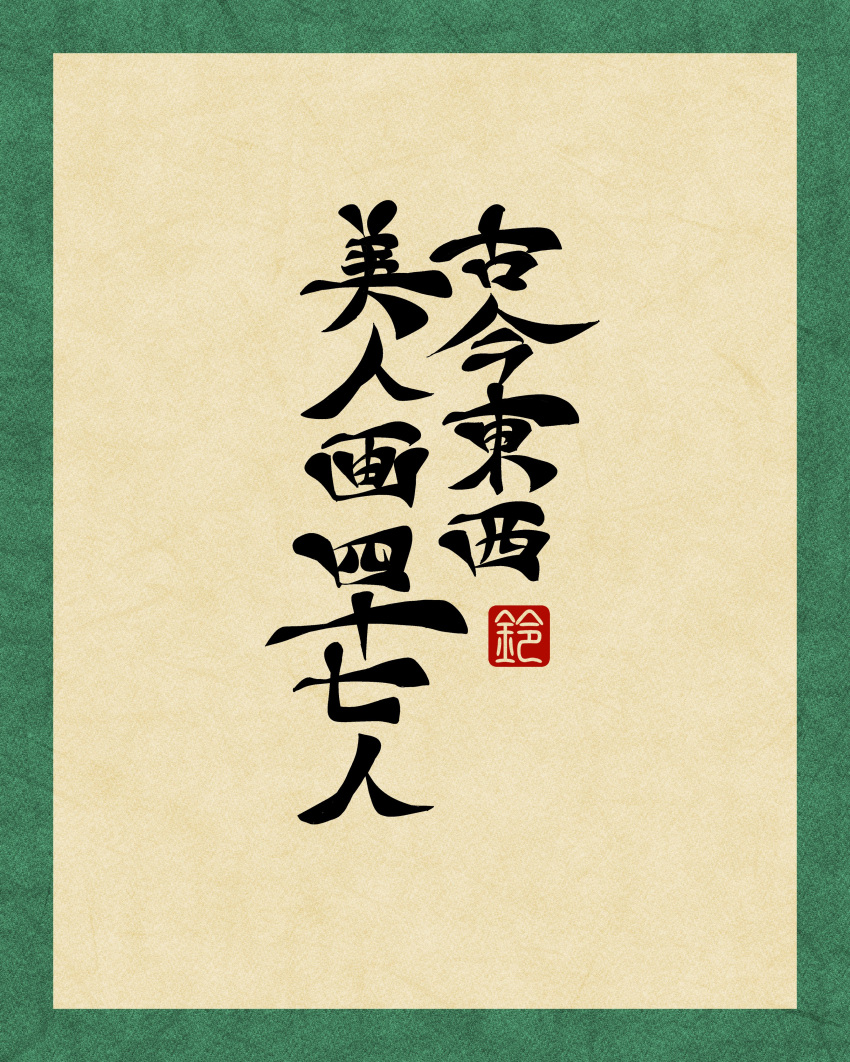 古今東西
美人画四十七人
鈴